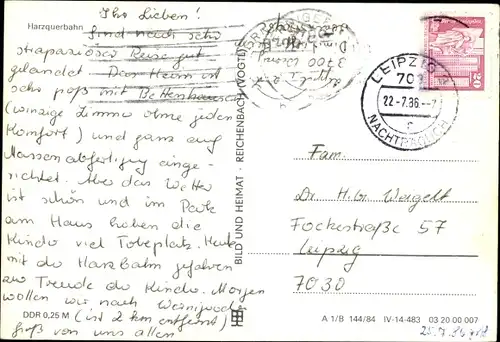 Harzquerbahn
Ihr Lieben!
Sind nach sehr
strapaziöser Reise gut
gelandet. Das Heim ist
sehr groß mit Bettenhäusern
(winzige Zimmer ohne jeden
Komfort) und ganz auf
Massenabfertigung einge-
richtet. Aber das Wetter
ist schön und im Park
am Haus haben die
Kinder viel Tobeplatz. Heute
mit der Harzbahn gefahren
zur Freude der Kinder. Morgen
wollen wir nach Wernigerode
(ist 2 km entfernt)
Gruß von uns allen
DDR 0,25 M
BILD UND HEIMAT · REICHENBACH (VOGTL)
3700
LEIPZIG
22-7.86
NACHTRÄGLICH
20
Fam.
Dr. H. Gr. Weigelt
Fockestraße 57
Leipzig
7030
A 1/B 144/84 IV-14-483 03 20 00 007
25.7.86